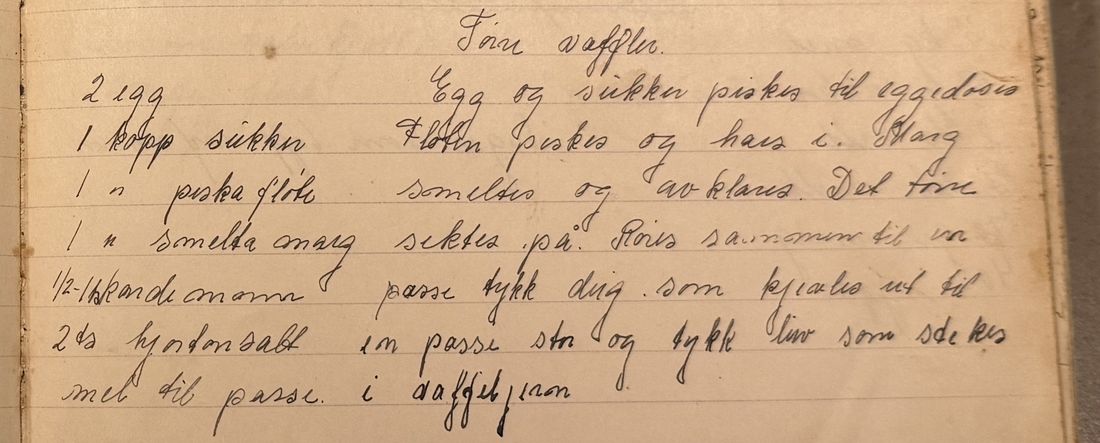 Tørre vaffler.
2 egg Egg og sukker piskes til eggedosis
1 kopp sukker Fløten piskes og haes i. Marg
1 " piska fløte smeltes og avklares. Det tørre
1 " smelta marg siktes på. Røres sammen til en
1/2-1 ts kardemomme passe tykk deig som kjevles ut til
2 ts hjortonsalt en passe stor og tykk leiv som stekes
mel til passe. i vaffeljern